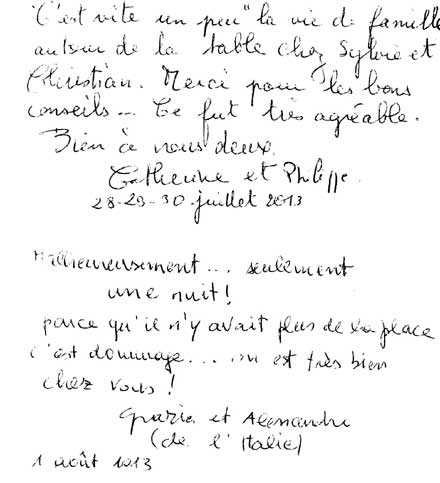 "C'est vite un peu" la vie de famille
autour de la table chez Sylvie et
Christian. Merci pour les bons
conseils... Ce fut très agréable.
Bien à vous deux.
Catherine et Philippe.
28-29-30 juillet 2013
Malheureusement... seulement
une nuit!
parce qu'il n'y avait plus de la place
c'est dommage... on est très bien
chez vous!
Grazia et Alessandro
(de l'Italie)
1 août 2013